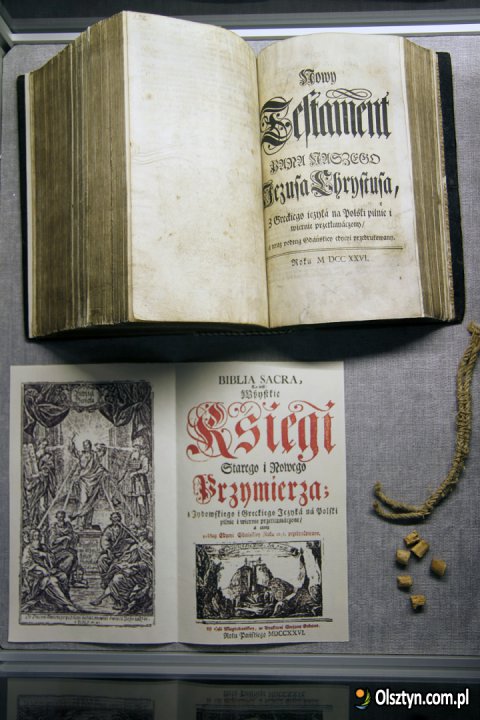 Nowy
Testament
PANA NASZEGO
Jezusa Chrystusa,
Z Greckiego języká ná Polski pilnie i
wiernie przetłumáczony/
á teraz podług Gdáńskiey edycyi przedrukowány.
Roku M DCC XXVI.
BIBLIA SACRA,
Wszystkie
Księgi
Starego i Nowego
Przymierza;
z Żydowskiego i Greckiego Języká ná Polski
pilnie i wiernie przetłumáczone/
Roku Páńskiego MDCCXXVI.
Olsztyn.com.pl